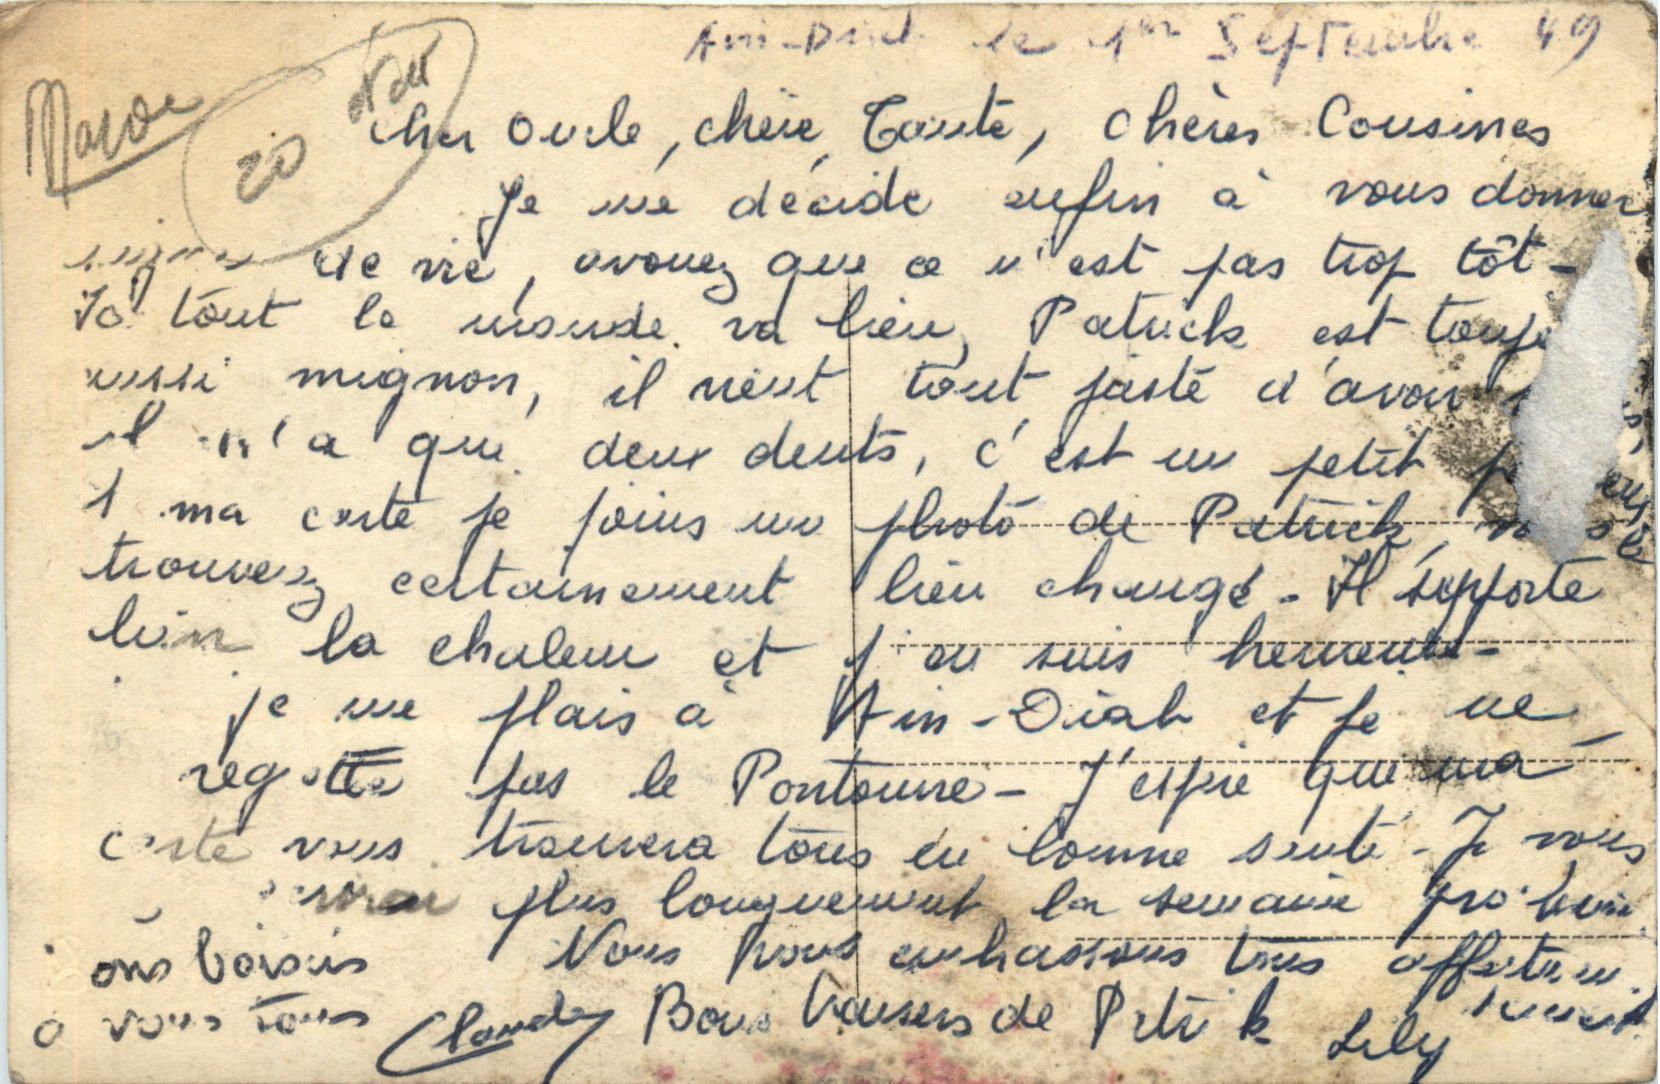 Ain-Diab le 1er Septembre 49
Maroc
20
Cher Oncle, chère Tante, Chères Cousines
Je me décide enfin à vous donner
signe de vie, avouez que ce n'est pas trop tôt -
Ici tout le monde va bien, Patrick est
aussi mignon, il vient tout juste d'avoir
il n'a que deux dents, c'est un petit
A ma carte je joins une photo de Patrick,
trouverez certainement bien changé - Il supporte
bien la chaleur et j'en suis heureuse -
je me plais à Ain-Diab et je ne
regrette pas le Pontource - J'espère que ma
carte vous trouvera tous en bonne santé - Je vous
plus longuement la semaine prochaine
Nous vous embrassons tous affectueu
sement
ons baisers
à vous tous Claude Bons baisers de Patrick Lily